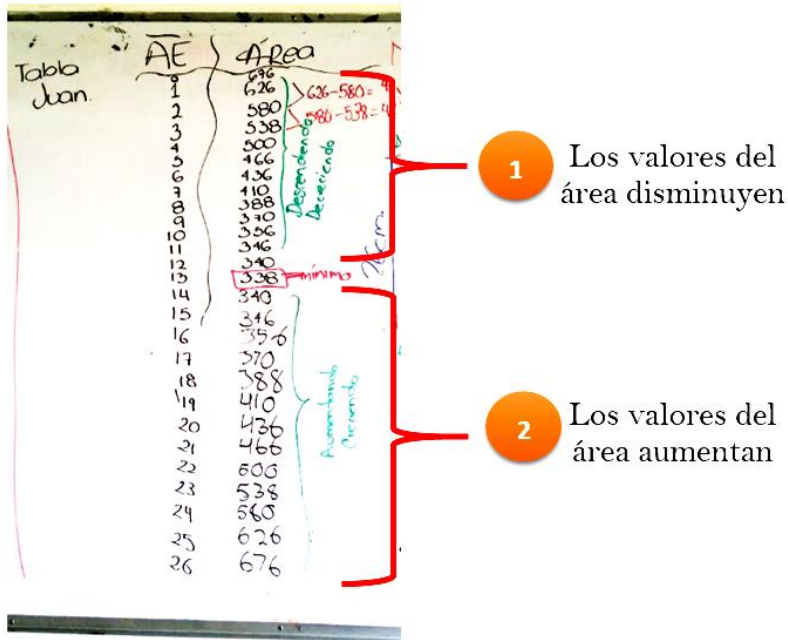 Tabla
Juan.
AE Área
0
1 626
2 580
3 538
4 500
5 466
6 436
7 410
8 388
9 370
10 356
11 346
12 340
13 338 mínimo
14 340
15 346
16 356
17 370
18 388
19 410
20 436
21 466
22 500
23 538
24 580
25 626
26 676
626-580=
580-538=
Descendiendo
Decreciendo
Aumentando
Creciendo
1
Los valores del
área disminuyen
2
Los valores del
área aumentan